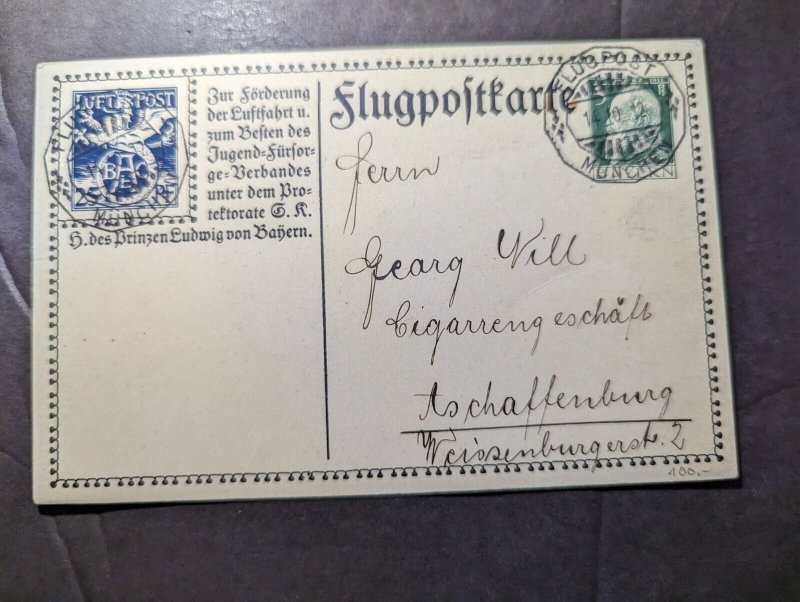 LUFT-POST
BAEC
25 Pf.
FLUGPOST
MÜNCHEN
Zur Förderung
der Luftfahrt u.
zum Besten des
Jugend-Fürsor-
ge-Verbandes
unter dem Pro-
tektorate S. K.
H. des Prinzen Ludwig von Bayern.
Flugpostkarte
FLUGPOST
MÜNCHEN
Herrn
Georg Will
Cigarrengeschäft
Aschaffenburg
Weissenburgerstr. 2
100.-